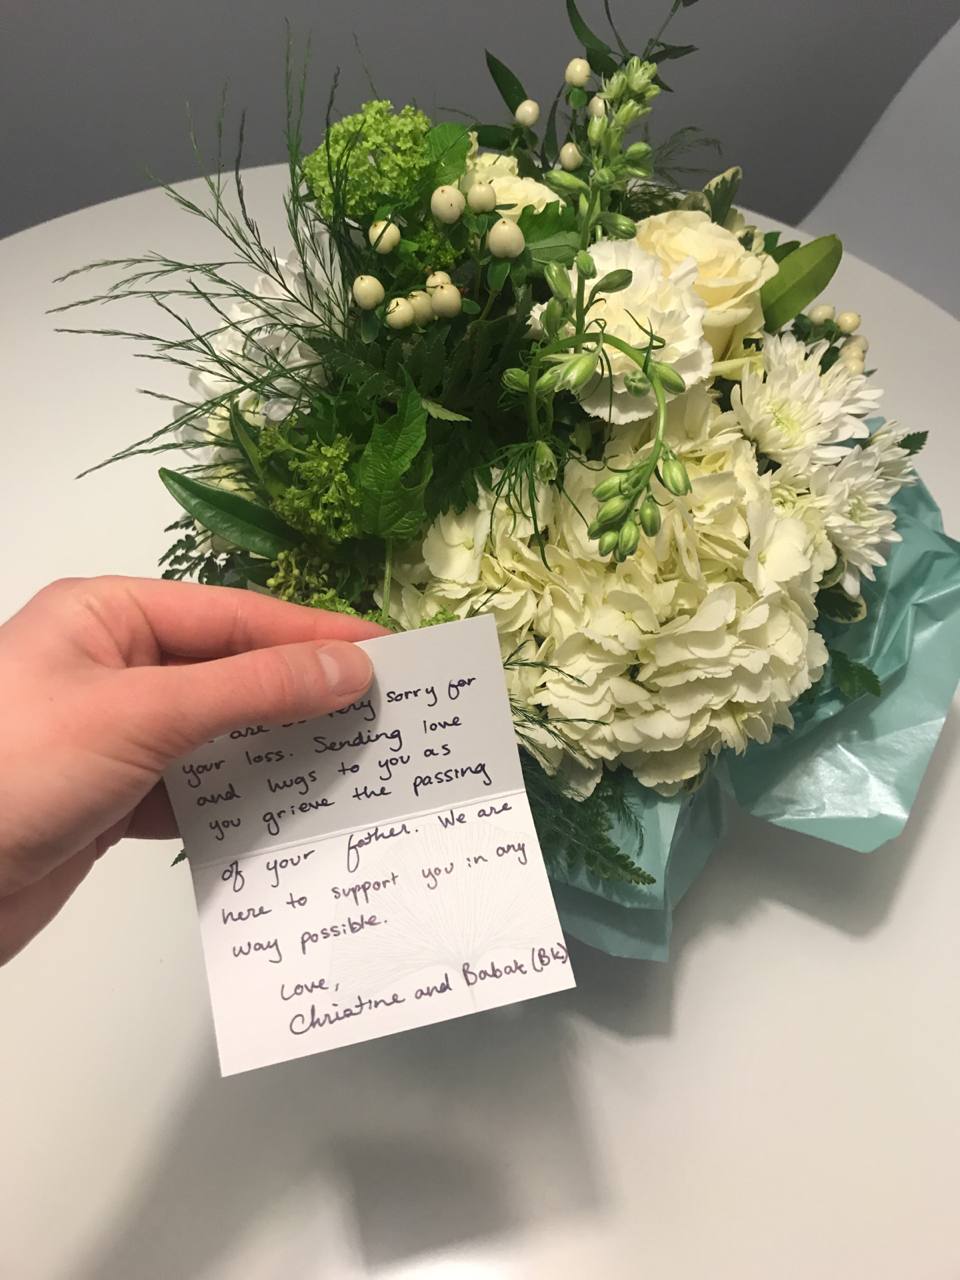 are so very sorry for
your loss. Sending love
and hugs to you as
you grieve the passing
of your father. We are
here to support you in any
way possible.
Love,
Christine and Babak (BK)